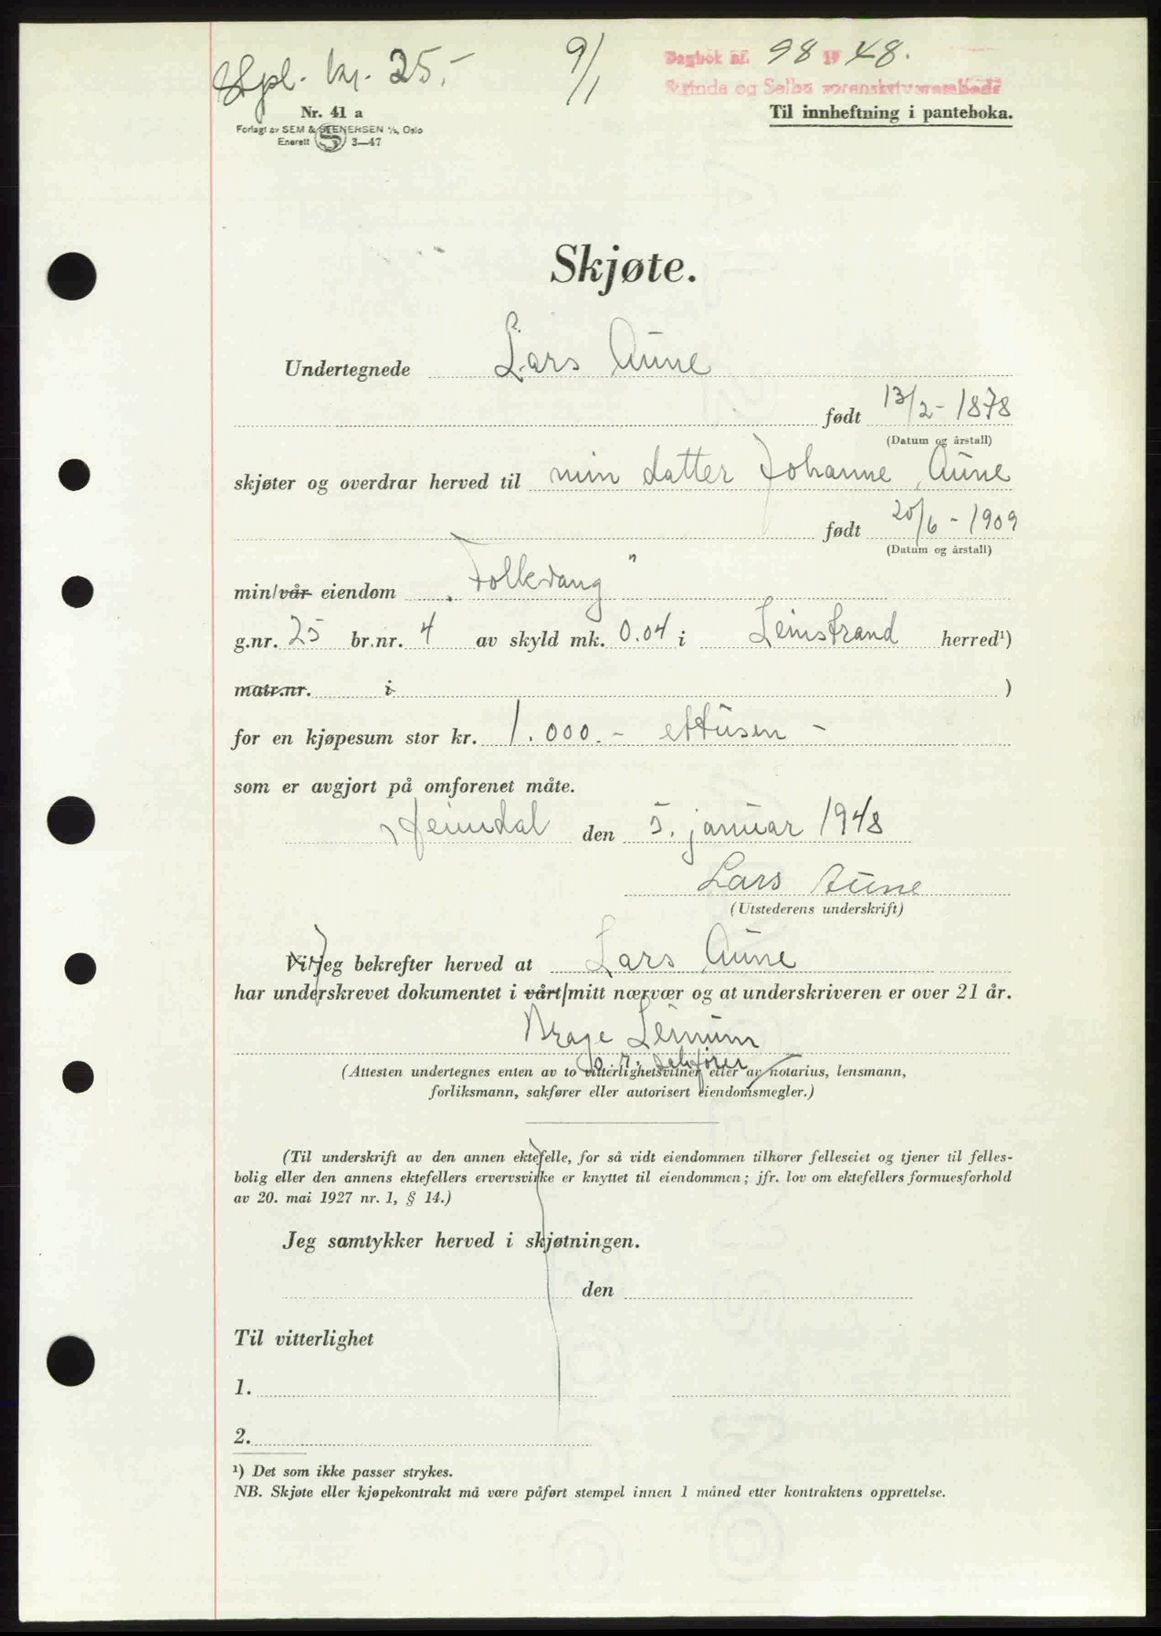 Stpl. kr. 25.-
9/1
Dagbok nr. 98 1948.
Strinda og Selbu sorenskriverembede
Nr. 41 a
Til innheftning i panteboka.
Forlagt av SEM & STENERSEN A/S, Oslo
Enerett S 3—47
Skjøte.
Undertegnede Lars Aune
født 13/2- 1878
(Datum og årstall)
skjøter og overdrar herved til min datter Johanne Aune
født 20/6 - 1909
(Datum og årstall)
min/vår eiendom „Folkvang"
g.nr. 25 br.nr. 4 av skyld mk. 0.04 i Leinstrand herred¹)
matr.nr. i )
for en kjøpesum stor kr. 1.000.- ettusen -
som er avgjort på omforenet måte.
Heimdal den 5. januar 1948
Lars Aune
(Utstederens underskrift)
Vi/Jeg bekrefter herved at Lars Aune
har underskrevet dokumentet i vårt/mitt nærvær og at underskriveren er over 21 år.
Brage Leinum
o.r. sakfører
(Attesten undertegnes enten av to vitterlighetsvitner eller av notarius, lensmann,
forliksmann, sakfører eller autorisert eiendomsmegler.)
(Til underskrift av den annen ektefelle, for så vidt eiendommen tilhører felleseiet og tjener til felles-
bolig eller den annens ektefellers ervervsvirke er knyttet til eiendommen; jfr. lov om ektefellers formuesforhold
av 20. mai 1927 nr. 1, § 14.)
Jeg samtykker herved i skjøtningen.
den
Til vitterlighet
1.
2.
¹) Det som ikke passer strykes.
NB. Skjøte eller kjøpekontrakt må være påført stempel innen 1 måned etter kontraktens opprettelse.